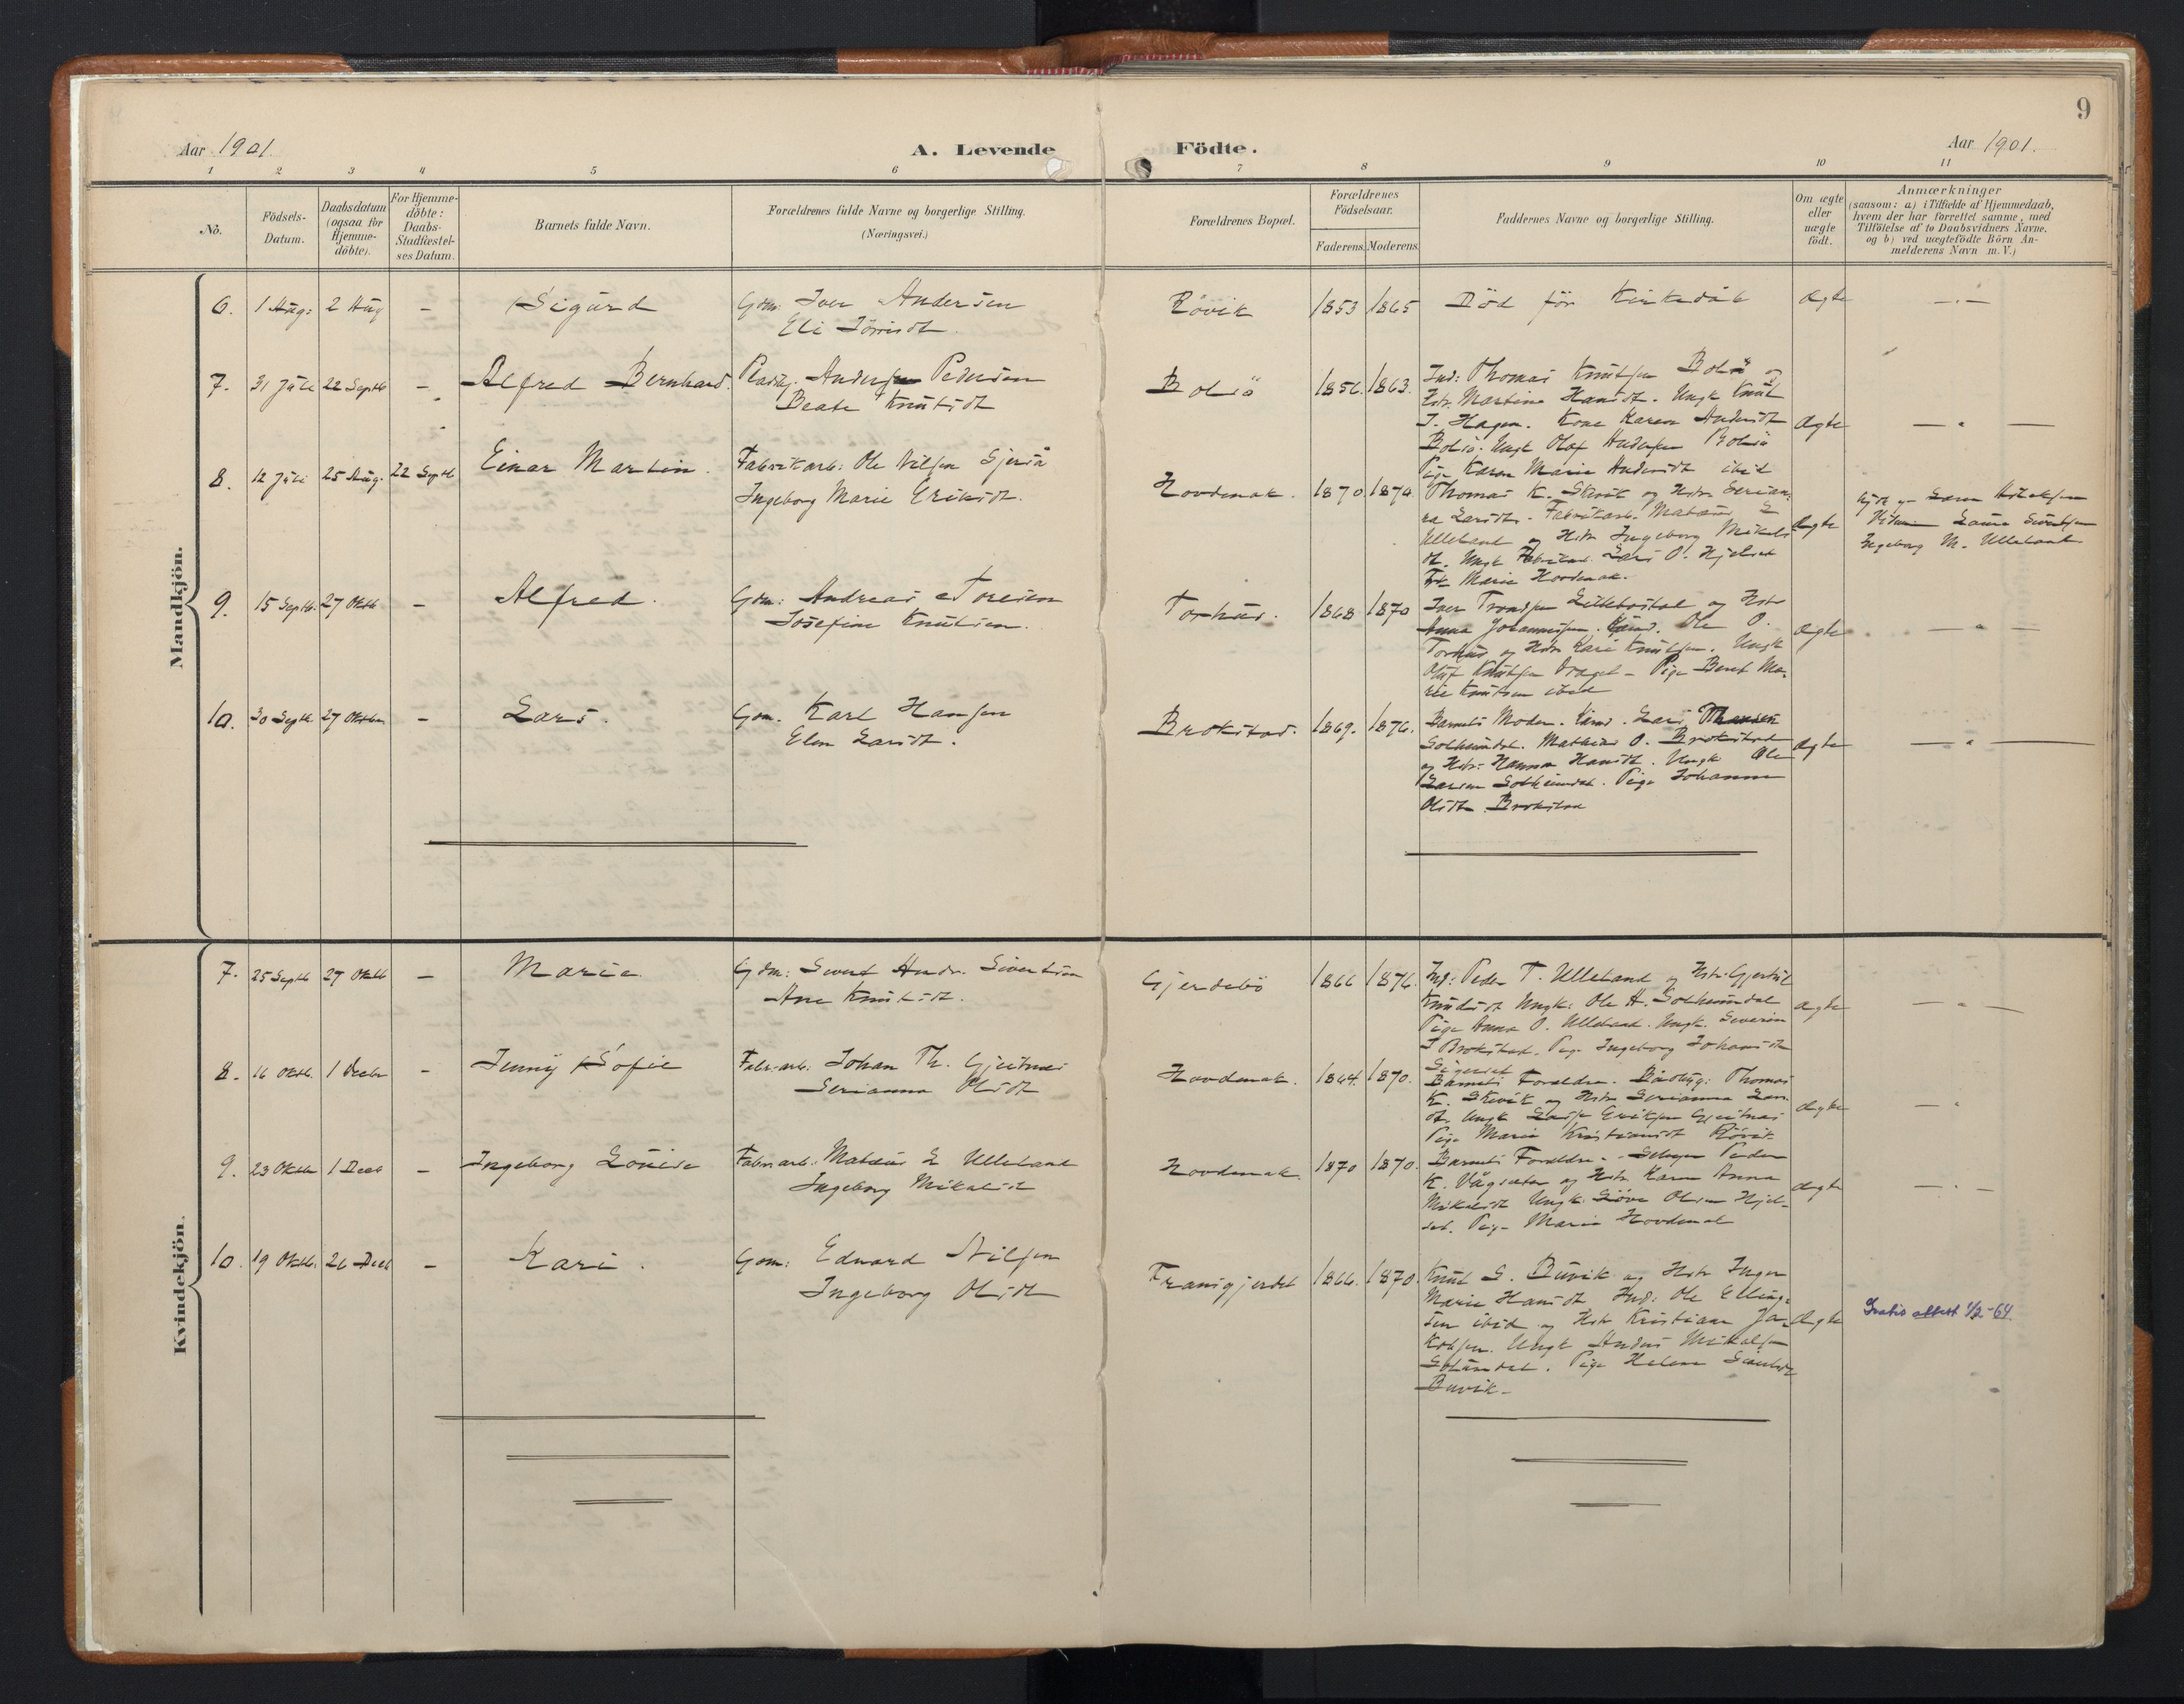 9
Aar 1901.
A. Levende
Födte.
Aar 1901.
1 2 3 4 5 6 7 8 9 10 11
No.
Födsels-
Datum.
Daabsdatum
(ogsaa for
Hjemme-
döbte).
For Hjemme-
döbte:
Daabs-
Stadfæstel-
ses Datum.
Barnets fulde Navn.
Forældrenes fulde Navne og borgerlige Stilling.
(Næringsvei.)
Forældrenes Bopæl.
Forældrenes
Födselsaar.
Faderens. Moderens.
Faddernes Navne og borgerlige Stilling.
Om ægte
eller
uægte
födt.
Anmærkninger
(saasom: a) i Tilfælde af Hjemmedaab,
hvem der har forrettet samme, med
Tilföielse af to Daabsvidners Navne,
og b) ved uægtefödte Börn An-
melderens Navn m.V.)
Mandkjön.
6. 1 Aug: 2 Aug – Sigurd
Gdm: Iver Andersen
Eli
Rövik 1853 1865
Död för Kirkedåb
Ægte
7. 31 Juli 22 Septb – Alfred Bernhard.
Anders Pedersen
Beate Knutsdt
Bolsö 1856. 1863.
Ind: Thomas Knutsen Bolsö og
Hstr. Martine Hansdt. Ungk Knut
J. Hagen. Kone Karen Andersdt
Bolsö. Ungk Olaf Andersen Bolsö
Pige Karen Marie Andersdt ibid
Ægte
8. 12 Juli 25 Aug. 22 Septb Einar Martin.
Fabrikarb: Ole Nilsen
Ingeborg Marie Eriksdt.
Hovdenak. 1870 1870.
Thomas K. Skevik og Hstr. Serian-
na Larsdtr. Fabrikarb. Matæus L
Ulleland og Hstr Ingeborg Mikals
dt. Ungk Lars O. Hjelset
Marie Hovdenak.
Ægte
Ingeborg M. Ulleland
9. 15 Septb. 27 Oktb – Alfred.
Gdm: Andreas Toresen
Josefine Knutsen.
Torhus. 1868 1870
Iver Trondsen Lillebostad og Hstr
Anna Johannesen. Ole O.
Torhus og Hstr Kari Knutsen. Ungk
Oluf Knutsen Draget – Pige Beret Ma-
rie Knutsen ibid
Ægte
10. 30 Septb 27 Oktbr – Lars.
Gdm. Karl Hansen
Elen Larsdt.
Brokstad. 1869. 1876.
Barnets Moder. Lars
Solheimdal. Mathias O. Brokstad
og Hstr: Hanna Hansdt. Ungk Ole
Larsen Solheimdal. Pige Johanna
Olsdtr Brokstad
Ægte
Kvindekjön.
7. 25 Septb 27 Oktb – Marie
Gdm: Sivert Andr. Sivertsen
Ane Knutsdt.
Gjerdebö 1866 1876.
Ind: Peder T. Ulleland og Hstr: Gjertrud
Knudsdt Ungk: Ole H. Solheimdal
Pige Anna O. Ulleland. Ungk. Severin
J Brokstad. Pige Ingeborg Johansdtr
Ægte
8. 16 Oktb. 1 Decbr – Jenny Sofie
Fabr. arb. Johan Th. Gjeitnes
Serianna Olsdt
Hovdenak. 1864. 1870.
Barnets Forældre. Thomas
K. Skevik og Hstr Serianna Lars
dt. Ungk Eriksen Gjeitnes
Pige Marie Kristiansdt Rövik
Ægte
9. 23 Oktbr 1 Decb – Ingeborg Lovise
Fabr. arb: Matæus L Ulleland
Ingeborg Mikalsdt
Hovdenak. 1870 1870.
Barnets Forældre. Peder
K. Vågsæter og Hstr Karen Anna
Mikalsdt Ungk. Olsen Hjel-
set. Pige Marie Hovdenak
Ægte
10. 19 Oktb. 26 Decb – Kari.
Gdm: Edvard Nilsen
Ingeborg Olsdt
Fransgjerdet 1866. 1870.
Knut S. Buvik og Hstr Inger
Marie Hansdt Ind: Ole Elling-
sen ibid og Hstr Kristiane Ja-
kobsen. Ungk Anders Mikalsen
Pige Helena
Buvik.
Ægte
Gratis attest 1/2-64.